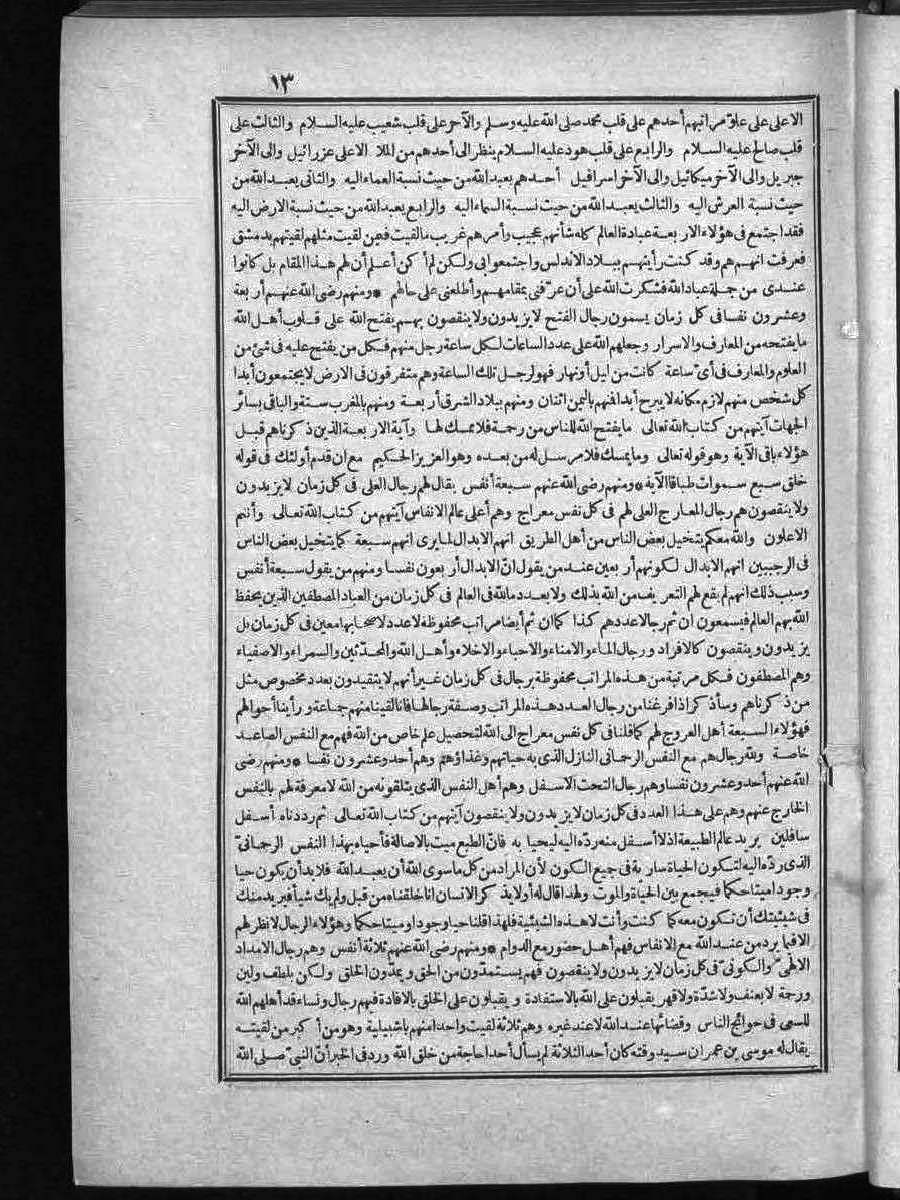 ١٣
الاعلى على علوّ مراتبهم أحدهم على قلب محمد صلى الله عليه وسلم والآخر على قلب شعيب عليه السلام والثالث على
قلب صالح عليه السلام والرابع على قلب هود عليه السلام ينظر الى أحدهم من الملا الاعلى عزرائيل والى الآخر
جبريل والى الآخر ميكائيل والى الآخر اسرافيل أحدهم يعبد الله من حيث نسبة العماء اليه والثانى يعبد الله من
حيث نسبة العرش اليه والثالث يعبد الله من حيث نسبة السماء اليه والرابع يعبد الله من حيث نسبة الارض اليه
فقد اجتمع فى هؤلاء الاربعة عبادة العالم كله شأنهم عجيب وأمرهم غريب ما لقيت فيمن لقيت مثلهم لقيتهم بدمشق
فعرفت انهم هم وقد كنت رأيتهم ببلاد الاندلس واجتمعوا بى ولكن لم أكن أعلم أن لهم هذا المقام بل كانوا
عندى من جملة عباد الله فشكرت الله على أن عرّفنى بمقامهم وأطلعنى على حالهم * ومنهم رضى الله عنهم أربعة
وعشرون نفسا فى كل زمان يسمون رجال الفتح لا يزيدون ولا ينقصون بهم يفتح الله على قلوب أهل الله
ما يفتحه من المعارف والاسرار وجعلهم الله على عدد الساعات لكل ساعة رجل منهم فكل من يفتح عليه فى شئ من
العلوم والمعارف فى أىّ ساعة كانت من ليل أو نهار فهو لرجل تلك الساعة وهم متفرقون فى الارض لا يجتمعون أبدا
كل شخص منهم لازم مكانه لا يبرح أبدا فمنهم باليمن اثنان ومنهم ببلاد الشرق أربعة ومنهم بالمغرب ستة والباقى بسائر
الجهات آيتهم من كتاب الله تعالى ما يفتح الله للناس من رحمة فلا ممسك لها وآية الاربعة الذين ذكرناهم قبل
هؤلاء باقى الآية وهو قوله تعالى وما يمسك فلا مرسل له من بعده وهو العزيز الحكيم مع ان قدم أولئك فى قوله
خلق سبع سموات طباقا الآية * ومنهم رضى الله عنهم سبعة أنفس يقال لهم رجال العلى فى كل زمان لا يزيدون
ولا ينقصون هم رجال المعارج العلى لهم فى كل نفس معراج وهم أعلى عالم الانفاس آيتهم من كتاب الله تعالى وأنتم
الاعلون والله معكم يتخيل بعض الناس من أهل الطريق انهم الابدال لما يرى انهم سبعة كما يتخيل بعض الناس
فى الرجبيين انهم الابدال لكونهم أربعين عند من يقول انّ الابدال أربعون نفسا ومنهم من يقول سبعة أنفس
وسبب ذلك انهم لم يقع لهم التعريف من الله بذلك ولا بعدد ما لله فى العالم فى كل زمان من العباد المصطفين الذين يحفظ
الله بهم العالم فيسمعون ان ثم رجالا عددهم كذا كما ان ثم أيضا مراتب محفوظة لا عدد لاصحابها معين فى كل زمان بل
يزيدون وينقصون كالافراد ورجال الماء والامناء والاحباء والاخلاء وأهل الله والمحدّثين والسمراء والاصفياء
وهم المصطفون فكل مرتبة من هذه المراتب محفوظة برجال فى كل زمان غير أنهم لا يتقيدون بعدد مخصوص مثل
من ذكرناهم وسأذكر اذا فرغنا من رجال العدد هذه المراتب وصفة رجالها فانا لقينا منهم جماعة ورأينا أحوالهم
فهؤلاء السبعة أهل العروج لهم كما قلنا فى كل نفس معراج الى الله لتحصيل علم خاص من الله فهم مع النفس الصاعد
خاصة ولله رجال هم مع النفس الرحمانى النازل الذى به حياتهم وغذاؤهم وهم أحد وعشرون نفسا * ومنهم رضى
الله عنهم أحد وعشرون نفسا وهم رجال التحت الاسفل وهم أهل النفس الذى يتلقونه من الله لا معرفة لهم بالنفس
الخارج عنهم وهم على هذا العدد فى كل زمان لا يزيدون ولا ينقصون آيتهم من كتاب الله تعالى ثم رددناه أسفل
سافلين يريد عالم الطبيعة اذ لا أسفل منه ردّه اليه ليحيا به فانّ الطبع ميت بالاصالة فأحياه بهذا النفس الرحمانىّ
الذى ردّه اليه لتكون الحياة سارية فى جميع الكون لأن المراد من كل ما سوى الله أن يعبد الله فلا بد أن يكون حيا
وجودا ميتا حكما فيجمع بين الحياة والموت ولهذا قال له أولا يذكر الانسان انا خلقناه من قبل ولم يك شيأ فيريد منك
فى شيئيتك أن تكون معه كما كنت وأنت لا هذه الشيئية فلهذا قلنا حيا وجودا وميتا حكما وهؤلاء الرجال لا نظر لهم
الا فيما يرد من عند الله مع الانفاس فهم أهل حضور مع الدوام * ومنهم رضى الله عنهم ثلاثة أنفس وهم رجال الامداد
الالهىّ والكونىّ فى كل زمان لا يزيدون ولا ينقصون فهم يستمدّون من الحق ويمدّون الخلق ولكن بلطف ولين
ورحمة لا بعنف ولا شدّة ولا قهر يقبلون على الله بالاستفادة ويقبلون على الخلق بالافادة فيهم رجال ونساء قد أهلهم الله
للسعى فى حوائج الناس وقضائها عند الله لا عند غيره وهم ثلاثة لقيت واحدا منهم باشبيلية وهو من أكبر من لقيته
يقال له موسى بن عمران سيد وقته كان أحد الثلاثة لم يسأل أحدا حاجة من خلق الله ورد فى الخبر انّ النبىّ صلى الله